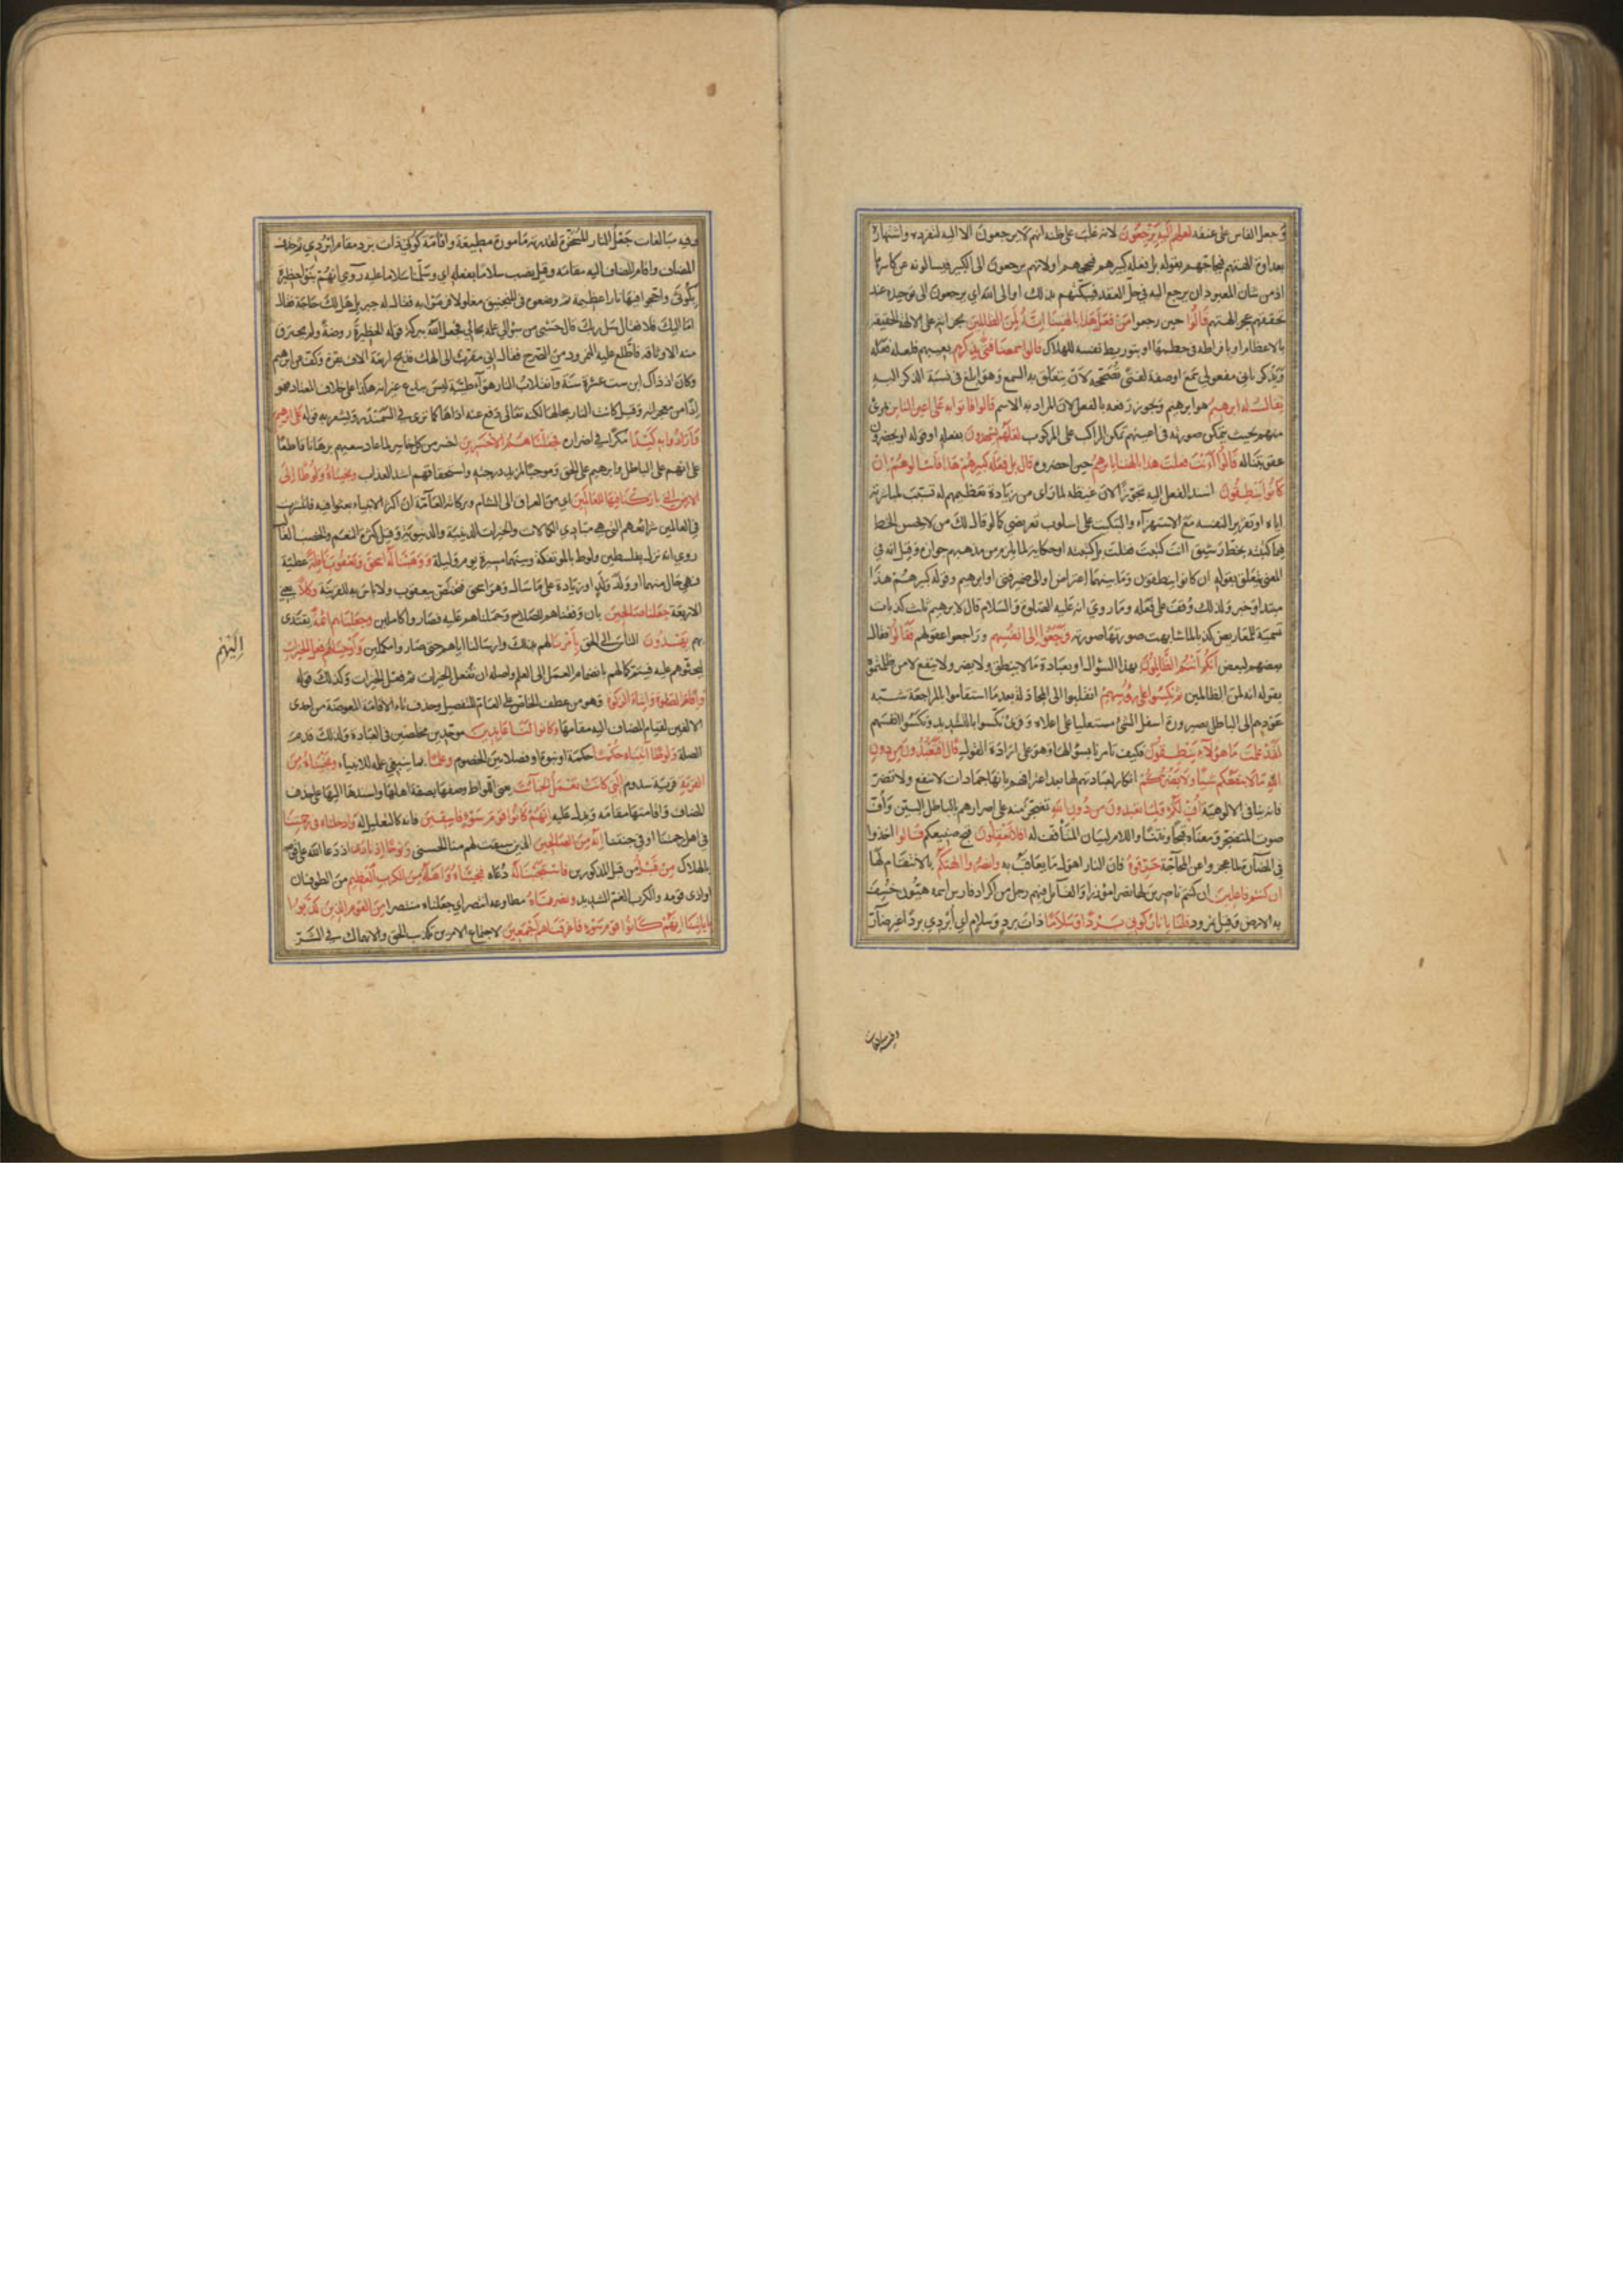 وجعل الفاس على عنقه لعلهم اليه يرجعون لانه غلب على ظنه انهم لا يرجعون الا اليه لتفرده واشتهاره
بعداوة الهتهم فيحاجهم بقوله بل فعله كبيرهم فيحجهم او لانهم يرجعون الى الكبير فيسالونه عن كاسرها
اذ من شان المعبود ان يرجع اليه في حل العقد فيبكتهم بذلك او الى الله اي يرجعون الى توحيده عند
تحققهم عجز الهتهم قالوا حين رجعوا من فعل هذا بالهتنا انه لمن الظالمين بجراته على الالهة الحقيقة
بالاعظام او بافراطه في حطمها او بتوريط نفسه للهلاك قالوا سمعنا فتى يذكرهم يعيبهم فلعله فعله
ويذكر ثاني مفعولي سمع او صفة لفتى تصححه لان يتعلق به السمع وهو ابلغ في نسبة الذكر اليه
يقال له ابرهيم هو ابرهيم ويجوز رفعه بالفعل لان المراد به الاسم قالوا فاتوا به على اعين الناس بمرئ
منهم بحيث يتمكن صورته في اعينهم تمكن الراكب على المركوب لعلهم يشهدون بفعله او قوله او يحضرون
عقوبتنا له قالوا اانت فعلت هذا بالهتنا يا ابرهيم حين احضروه قال بل فعله كبيرهم هذا فاسالوهم ان
كانوا ينطقون اسند الفعل اليه تجوزا لان غيظه لما راى من زيادة تعظيمهم له تسبب لمباشرته
اياه او تقرير النفسه مع الاستهزاء والتبكيت على اسلوب تعريضي كما لو قال لك من لا يحسن الخط
فيما كتبته بخط رشيق اانت كتبت فقلت بل كتبته او حكاية لما يلزم من مذهبهم جوازه وقيل انه في
المعنى متعلق بقوله ان كانوا ينطقون وما بينهما اعتراض او الى ضمير فتى او ابرهيم وقوله كبيرهم هذا
مبتدا وخبر ولذلك وقف على فعله وما روي انه عليه الصلوة والسلام قال لابرهيم ثلث كذبات
تسمية للمعاريض كذبا لما شابهت صورتها صورته فرجعوا الى انفسهم وراجعوا عقولهم فقالوا فقال
بعضهم لبعض انكم انتم الظالمون بهذا السؤال او بعبادة ما لا ينطق ولا يضر ولا ينفع لا من ظلمتموه
بقوله انه لمن الظالمين ثم نكسوا على رؤسهم انقلبوا الى المجادلة بعد ما استقاموا بالمراجعة شبه
عودهم الى الباطل بصيرورة اسفل الشئ مستعليا على اعلاه وقرئ نكسوا بالتشديد ونكسوا انفسهم
لقد علمت ما هؤلاء ينطقون فكيف تامرنا بسؤالها وهو على ارادة القول قال افتعبدون من دون
الله ما لا ينفعكم شيئا ولا يضركم انكار لعبادتهم لها بعد اعترافهم بانها جمادات لا تنفع ولا تضر
فانه ينافي الالوهية اف لكم ولما تعبدون من دون الله تضجر منه على اصرارهم بالباطل البين واف
صوت المتضجر ومعناه قبحا ونتنا واللام لبيان المتافف له افلا تعقلون قبح صنيعكم قالوا اخذوا
في المضارة لما عجزوا عن المحاجة حرقوه فان النار اهول ما يعاقب به وانصروا الهتكم بالانتقام لها
ان كنتم فاعلين ان كنتم ناصرين لها نصرا مؤزرا والقائل فيهم رجل من اكراد فارس اسمه هيون خسف
به الارض وقيل نمرود قلنا يا نار كوني بردا وسلاما ذات برد وسلام اي ابردي بردا غير ضار
وفيه مبالغات
وفيه مبالغات جعل النار المسخرة لقدرته مامورة مطيعة واقامة كوني ذات برد مقام ابردي ثم حذف
المضاف واقام المضاف اليه مقامه وقيل نصب سلاما بفعله اي وسلمنا سلاما عليه روي انهم بنوا حظيرة
بكوثى وجمعوا فيها نارا عظيمة ثم وضعوه في المنجنيق مغلولا فرموا به فقال له جبريل هل لك حاجة فقال
اما اليك فلا فقال سل ربك قال حسبي من سؤالي علمه بحالي فجعل الله ببركة قوله الحظيرة روضة ولم يحترق
منه الا وثاقه فاطلع عليه النمرود من الصرح فقال اني مقرب الى الهك فذبح اربعة الاف بقرة وكف عن ابرهيم
وكان اذ ذاك ابن ست عشرة سنة وانقلاب النار هواء طيبة ليس ببدع غير انه هكذا على خلاف المعتاد فهو
اذا من معجزاته وقيل كانت النار بحالها لكنه تعالى دفع عنه اذاها كما ترى في السمندر ويشعر به قوله على ابرهيم
وارادوا به كيدا مكرا في اضراره فجعلناهم الاخسرين اخسر من كل خاسر لما عاد سعيهم برهانا قاطعا
على انهم على الباطل وابرهيم على الحق وموجبا لمزيد درجته واستحقاقهم اشد العذاب ونجيناه ولوطا الى
الارض التي باركنا فيها للعالمين اي من العراق الى الشام وبركاته العامة ان اكثر الانبياء بعثوا فيه فانتشرت
في العالمين شرائعهم التي هي مبادي الكمالات والخيرات الدينية والدنيوية وقيل كثرة النعم والخصب الغالب
روي انه نزل بفلسطين ولوط بالمؤتفكة وبينهما مسيرة يوم وليلة ووهبنا له اسحق ويعقوب نافلة عطية
فهي حال منهما او ولد ولد او زيادة على ما سال وهو اسحق فتختص بيعقوب ولا باس به للقرينة وكلا يعني
الاربعة جعلنا صالحين بان وفقناهم للصلاح وحملناهم عليه فصاروا كاملين وجعلناهم ائمة يقتدى
بهم يهدون الناس الى الحق بامرنا لهم بذلك وارسالنا اياهم حتى صاروا مكملين واوحينا اليهم فعل الخيرات
اليهم
ليحثوهم عليه فيتم كمالهم بانضمام العمل الى العلم واصله ان تفعل الخيرات ثم فعل الخيرات وكذلك قوله
واقام الصلوة وايتاء الزكوة وهو من عطف الخاص على العام للتفضيل وحذف تاء الاقامة المعوضة من احدى
الالفين لقيام المضاف اليه مقامها وكانوا لنا عابدين موحدين مخلصين في العبادة ولذلك قدم
الصلة ولوطا اتيناه حكما حكمة او نبوة او فصلا بين الخصوم وعلما بما ينبغي علمه للانبياء ونجيناه من
القرية قرية سدوم التي كانت تعمل الخبائث يعني اللواط وصفها بصفة اهلها واسندها اليها على حذف
المضاف واقامتها مقامه ويدل عليه انهم كانوا قوم سوء فاسقين فانه كالتعليل له وادخلناه في رحمتنا
في اهل رحمتنا او في جنتنا انه من الصالحين الذين سبقت لهم منا الحسنى ونوحا اذ نادى اذ دعا الله على قومه
بالهلاك من قبل من قبل المذكورين فاستجبنا له دعاءه فنجيناه واهله من الكرب العظيم من الطوفان
او اذى قومه والكرب الغم الشديد ونصرناه مطاوعه انتصر اي جعلناه منتصرا من القوم الذين كذبوا
باياتنا انهم كانوا قوم سوء فاغرقناهم اجمعين لاجتماع الامرين تكذيب الحق والانهماك في الشر